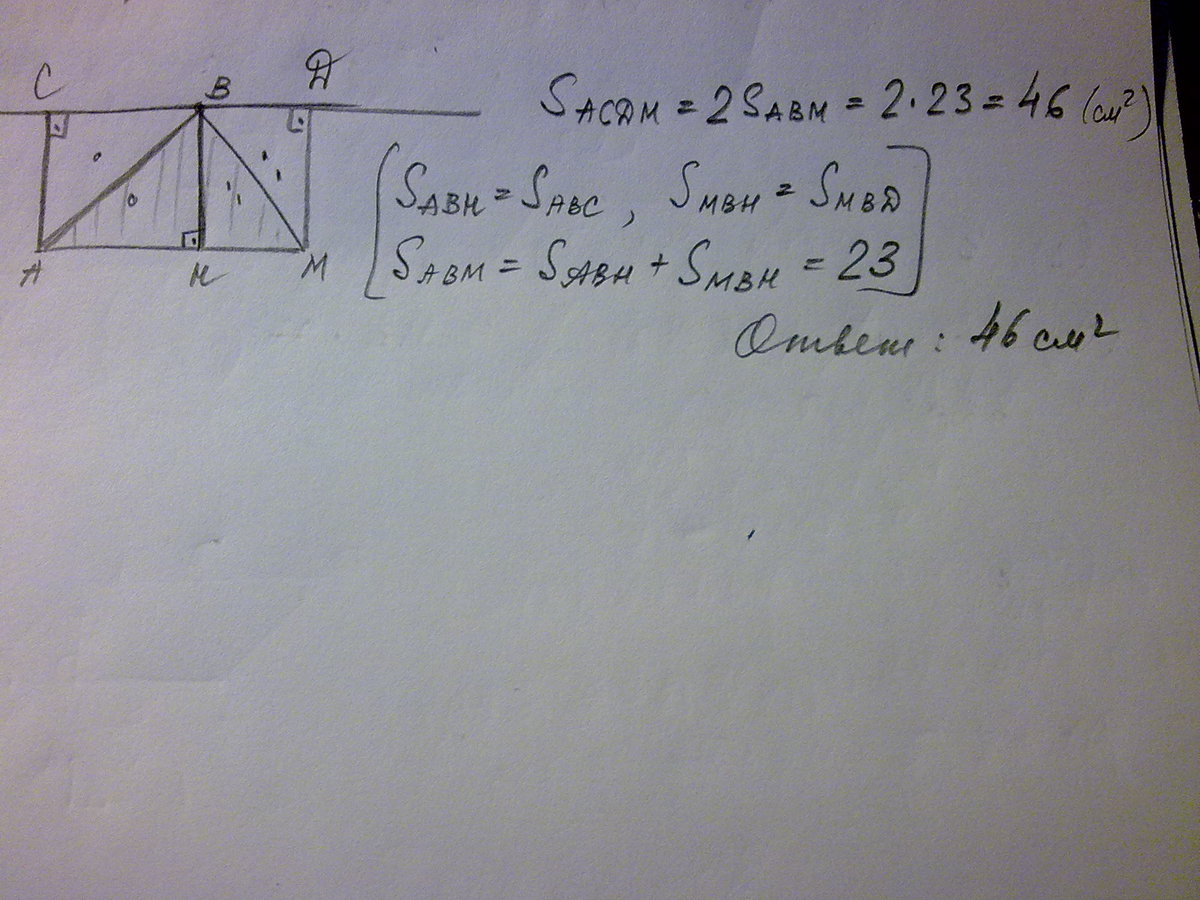 C B D
S ACDM = 2S ABM = 2·23 = 46 (см²)
S ABH = S ABC , S MBH = S MBD
S ABM = S ABH + S MBH = 23
A H M
Ответ: 46 см²